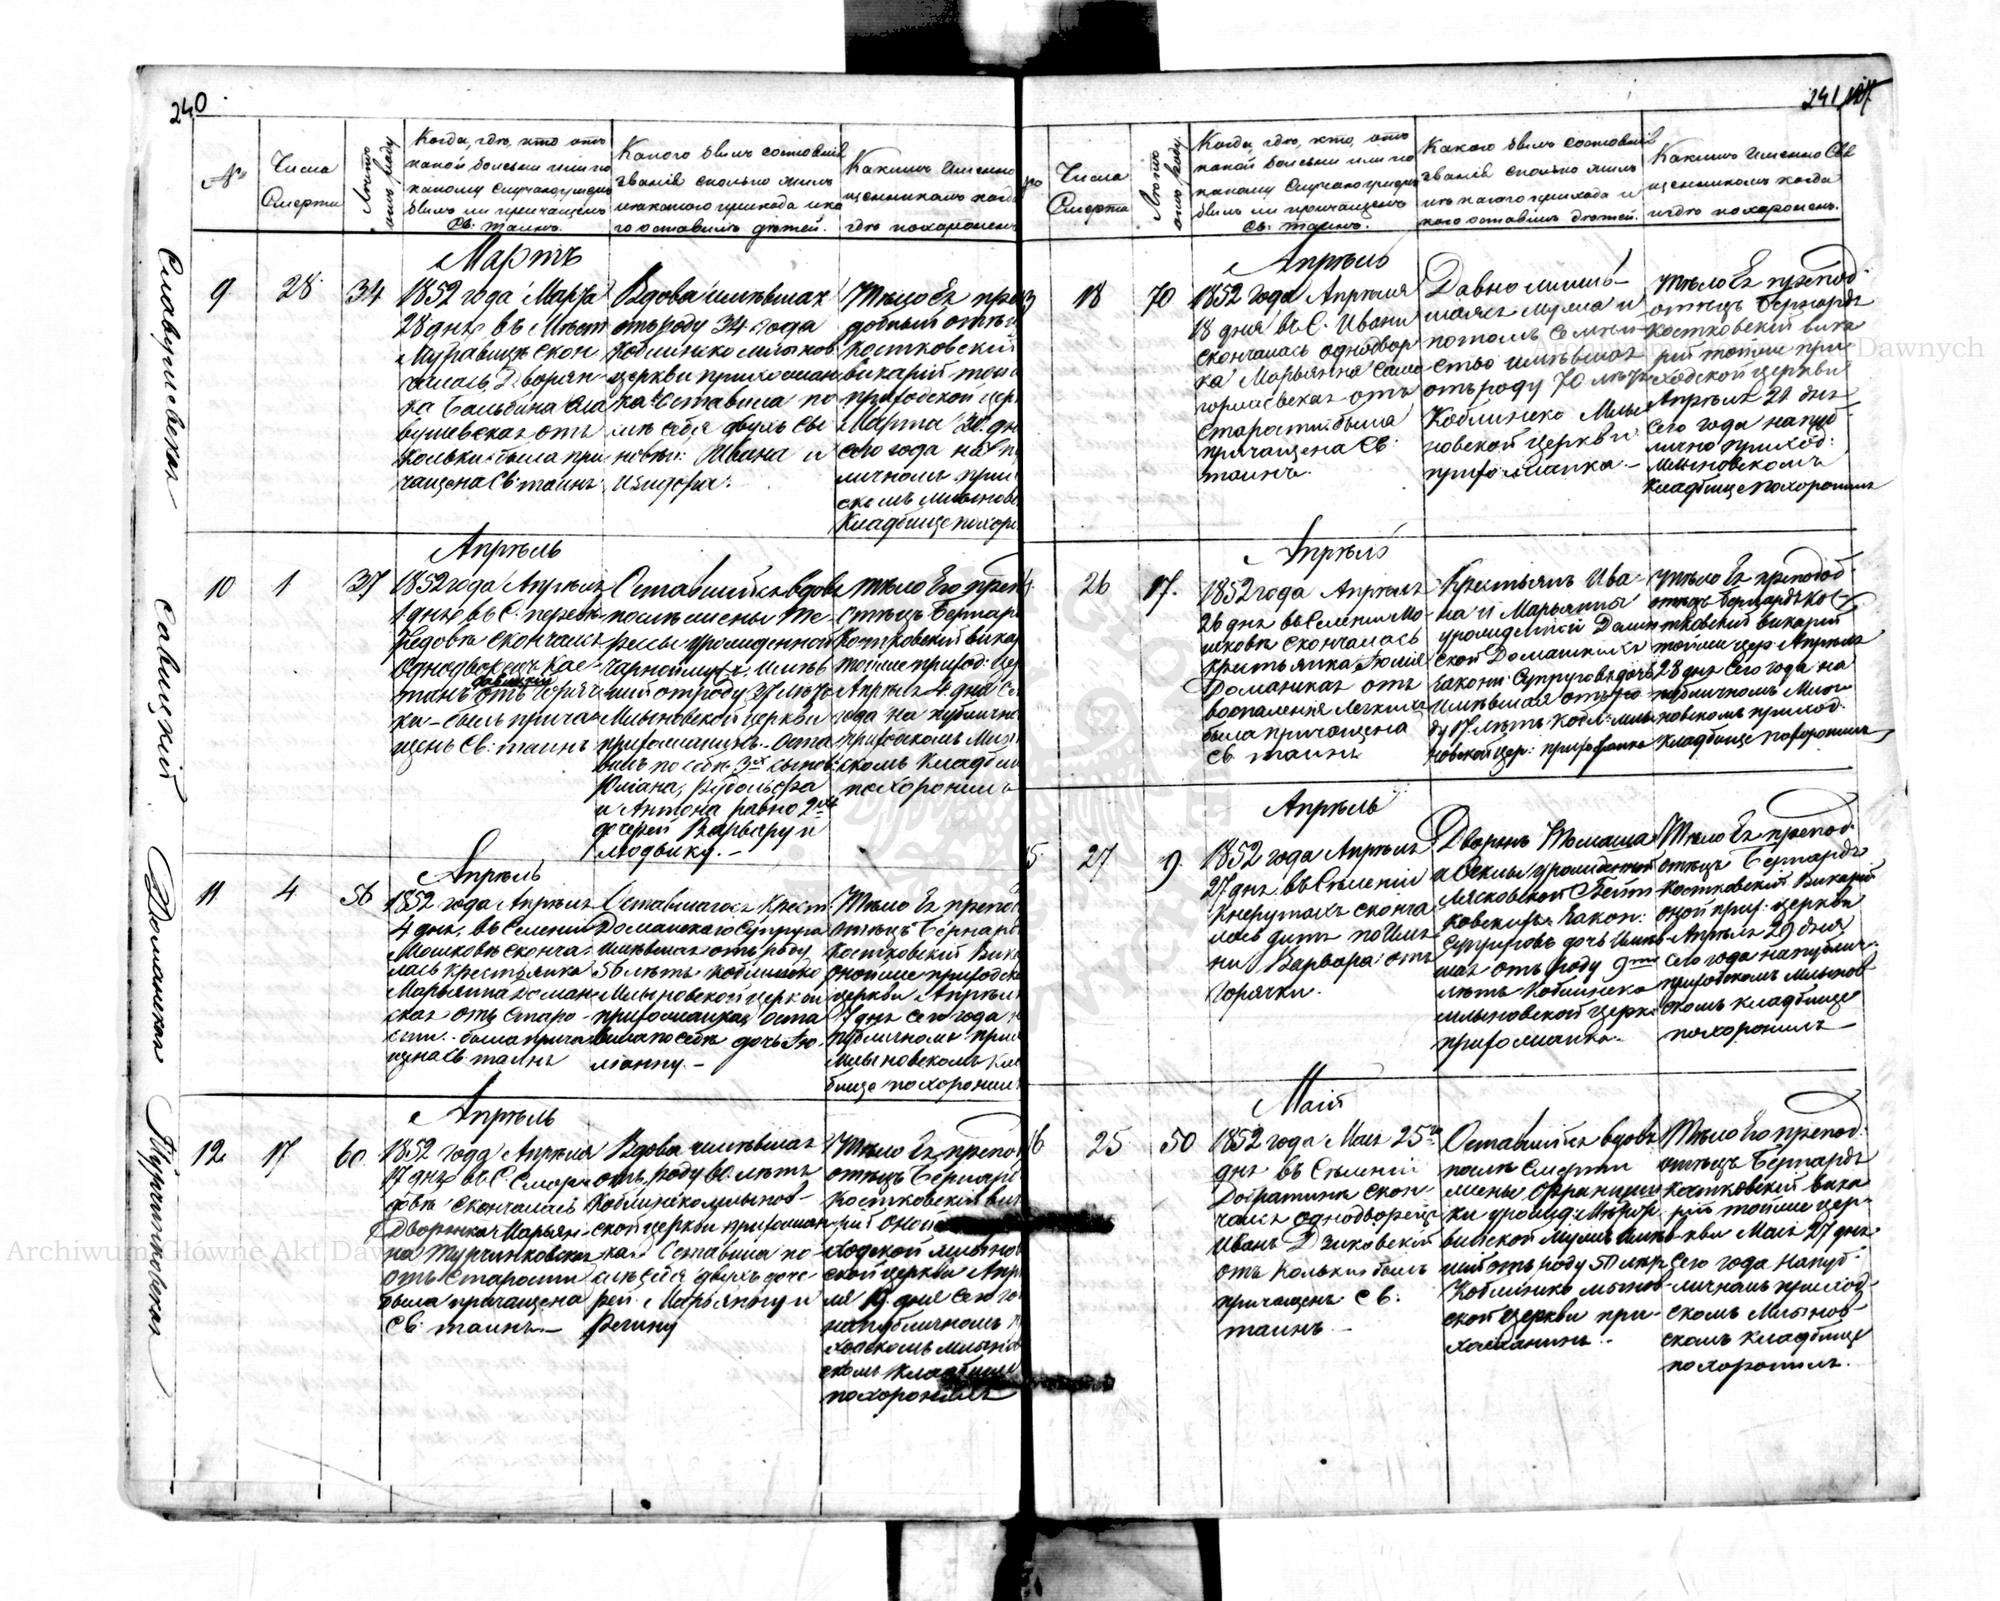 240
№
Числа
Смерти
Лѣтъ
отъ роду
Когда, гдѣ, кто, отъ
какой болѣзни или по
какому случаю умеръ
былъ ли причащенъ
Св: таинъ.
Какого былъ состоянія
званія сколько жилъ
и какого прихода и ко
го оставилъ дѣтей.
Какимъ Именно
щенникомъ когда
гдѣ похороненъ
Славушевская
9
28
34
Мартъ
1852 года Марта
28 дня въ Мѣст
Муравицѣ скон
чалась Дворян-
ка Бальбина Сла
вушевская отъ
Кольки была при
чащена Св: таинъ
Вдова имѣвшая
отъ роду 34 года
Коблинско млынов
церкви прихожан
ка Оставила по
слѣ себя двухъ сы
новъ: Ивана и
Изидора.
Тѣло Ея пре
добный отецъ
Костковскій
викарій той
приходской цер
Марта 30 дн
сего года на
личномъ при
скомъ млынов
Кладбищѣ похоро
Савицкій
10
1
37
Апрѣль
1852 года Апрѣля
1 дня въ С.
скончался
Однодворецъ Кае-
танъ Савицкій отъ горяч
ки - былъ прича
щенъ Св: таинъ
Оставшійся вдов
послѣ жены Те
рессы урожденной
имѣв
шій отъ роду 37 лѣтъ
Млыновской церкви
прихожанинъ. Оста
вилъ по себѣ 3хъ сынов:
Юліана, Рудольфа
и Антона равно 2хъ
дочерей Варвару и
Людвику.
Тѣло Его преп
отецъ Бернар
Костковскій викар
тойже приход: цер
Апрѣля 4 дня се
года на публично
приходскомъ Млы
скомъ кладби
похоронилъ
Доманская
11
4
56
Апрѣль
1852 года Апрѣля
4 дня, въ Селеніи
Мошковъ сконча-
лась крестьянка
Марьянна Доман-
ская отъ старо-
сти. была прича
щена Св: таинъ
Оставшаяся Крест
Доманскаго Супруга
имѣвшая отъ роду
56 лѣтъ Коблинско
Млыновской церкви
прихожанка оста
вила по себѣ дочь Ю-
ліанну.
Тѣло Ея препо
отецъ Бернард
Костковскій Вика
онойже приходско
церкви Апрѣля
7 дня сего года н
публичномъ при
Млыновскомъ кла
бищѣ похоронилъ
Турчинковская
12
17
60
Апрѣль
1852 года Апрѣля
17 дня въ С. Смор
довѣ скончалась
Дворянка Марьян-
на Турчинковская
отъ Старости
была причащена
Св: таинъ
Вдова имѣвшая
отъ роду 60 лѣтъ
Коблинско млынов-
ской церкви прихожан
ка. Оставила по-
слѣ себя двухъ доче-
рей Марьянну и
Регину
Тѣло Ея препо
отецъ Бернард
Костковскій вик
рій оной
ходской млынов
ской церкви Апрѣ
ля 19 дня сего го
на публичномъ
ходскомъ млынов
скомъ кладбищѣ
похоронилъ
241
№
Числа
Смерти
Лѣтъ
отъ роду.
Когда, гдѣ, кто, отъ
какой болѣзни или по
какому случаю умеръ
былъ ли причащенъ
Св: таинъ.
Какого былъ состоянія
званія сколько жилъ
и какого прихода и
кого оставилъ дѣтей.
Какимъ Именно Св
щенникомъ когда
и гдѣ похороненъ.
13
18
70
Апрѣль
1852 года Апрѣля
18 дня въ С. Ивани
скончалась однодвор
ка Марьянна
отъ
старости: была
причащена Св:
таинъ.
Давно лишив-
шаяся мужа и
потомъ
имѣвшая
отъ роду 70 лѣтъ
Коблинско Млы
новской церкви
прихожанка.
Тѣло Ея препод:
отецъ Бернардъ
Костковскій вика
рій тойже при-
ходской церкви
Апрѣля 21 дня
сего года на пуб
лично приход:
Млыновскомъ
Кладбищѣ похоронилъ
14
26
17.
Апрѣль
1852 года Апрѣля
26 дня въ Селеніи Мо-
шковѣ скончалась
крестьянка Юлія
Доманская отъ
воспаленія легкихъ
была причащена
Св. таинъ
Крестьянъ Ива-
на и Марьянны
урожденной
Доманскихъ
законн: Супруговъ дочь
имѣвшая отъ ро-
ду 17 лѣтъ Кобл: млы
новской цер: прихожанка
Тѣло Ея преподоб-
отецъ Бернардъ Ко-
стковскій викарій
тойже цер: Апрѣля
28 дня Сего года на
публичномъ Млы-
новскомъ приход:
кладбищѣ похоронилъ
15
27
9
Апрѣль
1852 года Апрѣля
27 дня въ Селеніи
Кнерутахъ сконча
лась дитя по име
ни Варвара отъ
горячки.
Дворянъ Томаша
и Теклы урожденной
Лясковской
Закон:
Супруговъ дочь имѣв
шая отъ роду 9ть
лѣтъ Коблинско
млыновской церкв
прихожанка.
Тѣло Ея препод:
отецъ Бернардъ
Костковскій Викарій
оной прих: церкви
Апрѣля 29 дня
Сего года на публич-
приходскомъ Млынов-
скомъ кладбищѣ
похоронилъ
16
25
50
Май
1852 года Мая 25го
дня въ Селеніи
Добратинѣ скон
чался однодворецъ
Иванъ Дзиковскій
отъ Кольки былъ
причащенъ Св:
таинъ
Оставшійся вдовъ
послѣ смерти
жены Францишки
урожд:
имѣв
шій отъ роду 50 лѣтъ
Коблинско млынов-
ской церкви при-
хожанинъ.
Тѣло Его препод:
отецъ Бернардъ
Костковскій вика
рій тойже цер-
кви Мая 27 дня
Сего года на пуб-
личномъ приход-
скомъ Млынов-
скомъ кладбищѣ
похоронилъ.
Archiwum Główne Akt Dawnych
Archiwum Główne Akt Dawnych